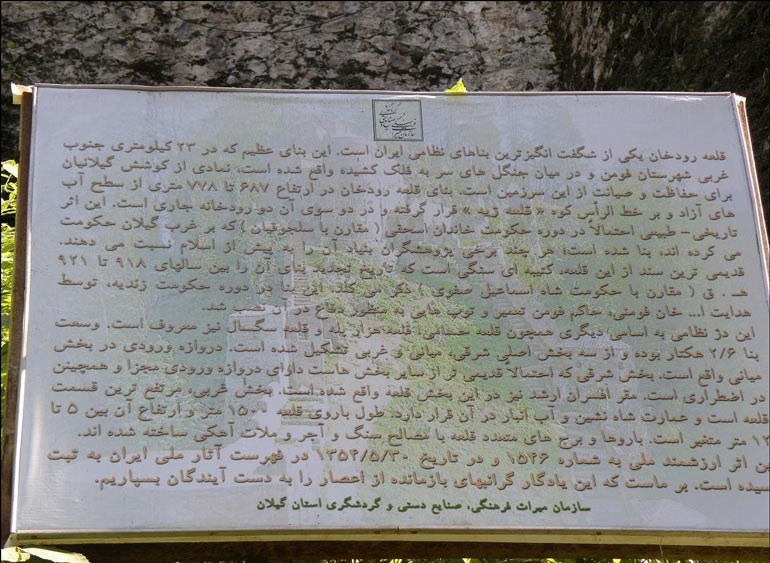 قلعه رودخان یکی از شگفت انگیزترین بناهای نظامی ایران است. این بنای عظیم که در ۲۳ کیلومتری جنوب
غربی شهرستان فومن و در میان جنگل های سر به فلک کشیده واقع شده است، نمادی از کوشش گیلانیان
برای حفاظت و صیانت از این سرزمین است. بنای قلعه رودخان در ارتفاع ۶۸۷ تا ۷۷۸ متری از سطح آب
های آزاد و بر خط الرأس کوه « قلعه ژیه » قرار گرفته و در دو سوی آن دو رودخانه جاری است. این اثر
تاریخی - طبیعی احتمالاً در دوره حکومت خاندان اسحقی ( مقارن با سلجوقیان ) که بر غرب گیلان حکومت
می کرده اند، بنا شده است. هر چند برخی پژوهشگران بنیاد آن را به پیش از اسلام نسبت می دهند.
قدیمی ترین سند از این قلعه، کتیبه ای سنگی است که تاریخ تجدید بنای آن را بین سالهای ۹۱۸ تا ۹۲۱
هـ . ق ( مقارن با حکومت شاه اسماعیل صفوی ) ذکر می کند. این بنا در دوره حکومت زندیه، توسط
هدایت ا... خان فومنی، حاکم فومن تعمیر و توپ هایی به منظور دفاع در آن شد.
این دژ نظامی به اسامی دیگری همچون قلعه حسامی، قلعه هزار پله و قلعه سگسال نیز معروف است. وسعت
بنا ۲/۶ هکتار بوده و از سه بخش اصلی شرقی، میانی و غربی تشکیل شده است. دروازه ورودی در بخش
میانی واقع است. بخش شرقی که احتمالاً قدیمی تر از سایر بخش هاست دارای دروازه ورودی مجزا و همچنین
در اضطراری است. مقر افسران ارشد نیز در این بخش قلعه واقع شده است. بخش غربی، مرتفع ترین قسمت
قلعه است و عمارت شاه نشین و آب انبار در آن قرار دارد. طول باروی قلعه ۱۵۰۰ متر و ارتفاع آن بین ۵ تا
متر متغیر است. باروها و برج های متعدد قلعه با مصالح سنگ و آجر و ملات آهکی ساخته شده اند.
اثر ارزشمند ملی به شماره ۱۵۴۶ و در تاریخ ۱۳۵۴/۵/۳۰ در فهرست آثار ملی ایران به ثبت
است. بر ماست که این یادگار گرانبهای بازمانده از اعصار را به دست آیندگان بسپاریم.
سازمان میراث فرهنگی، صنایع دستی و گردشگری استان گیلان